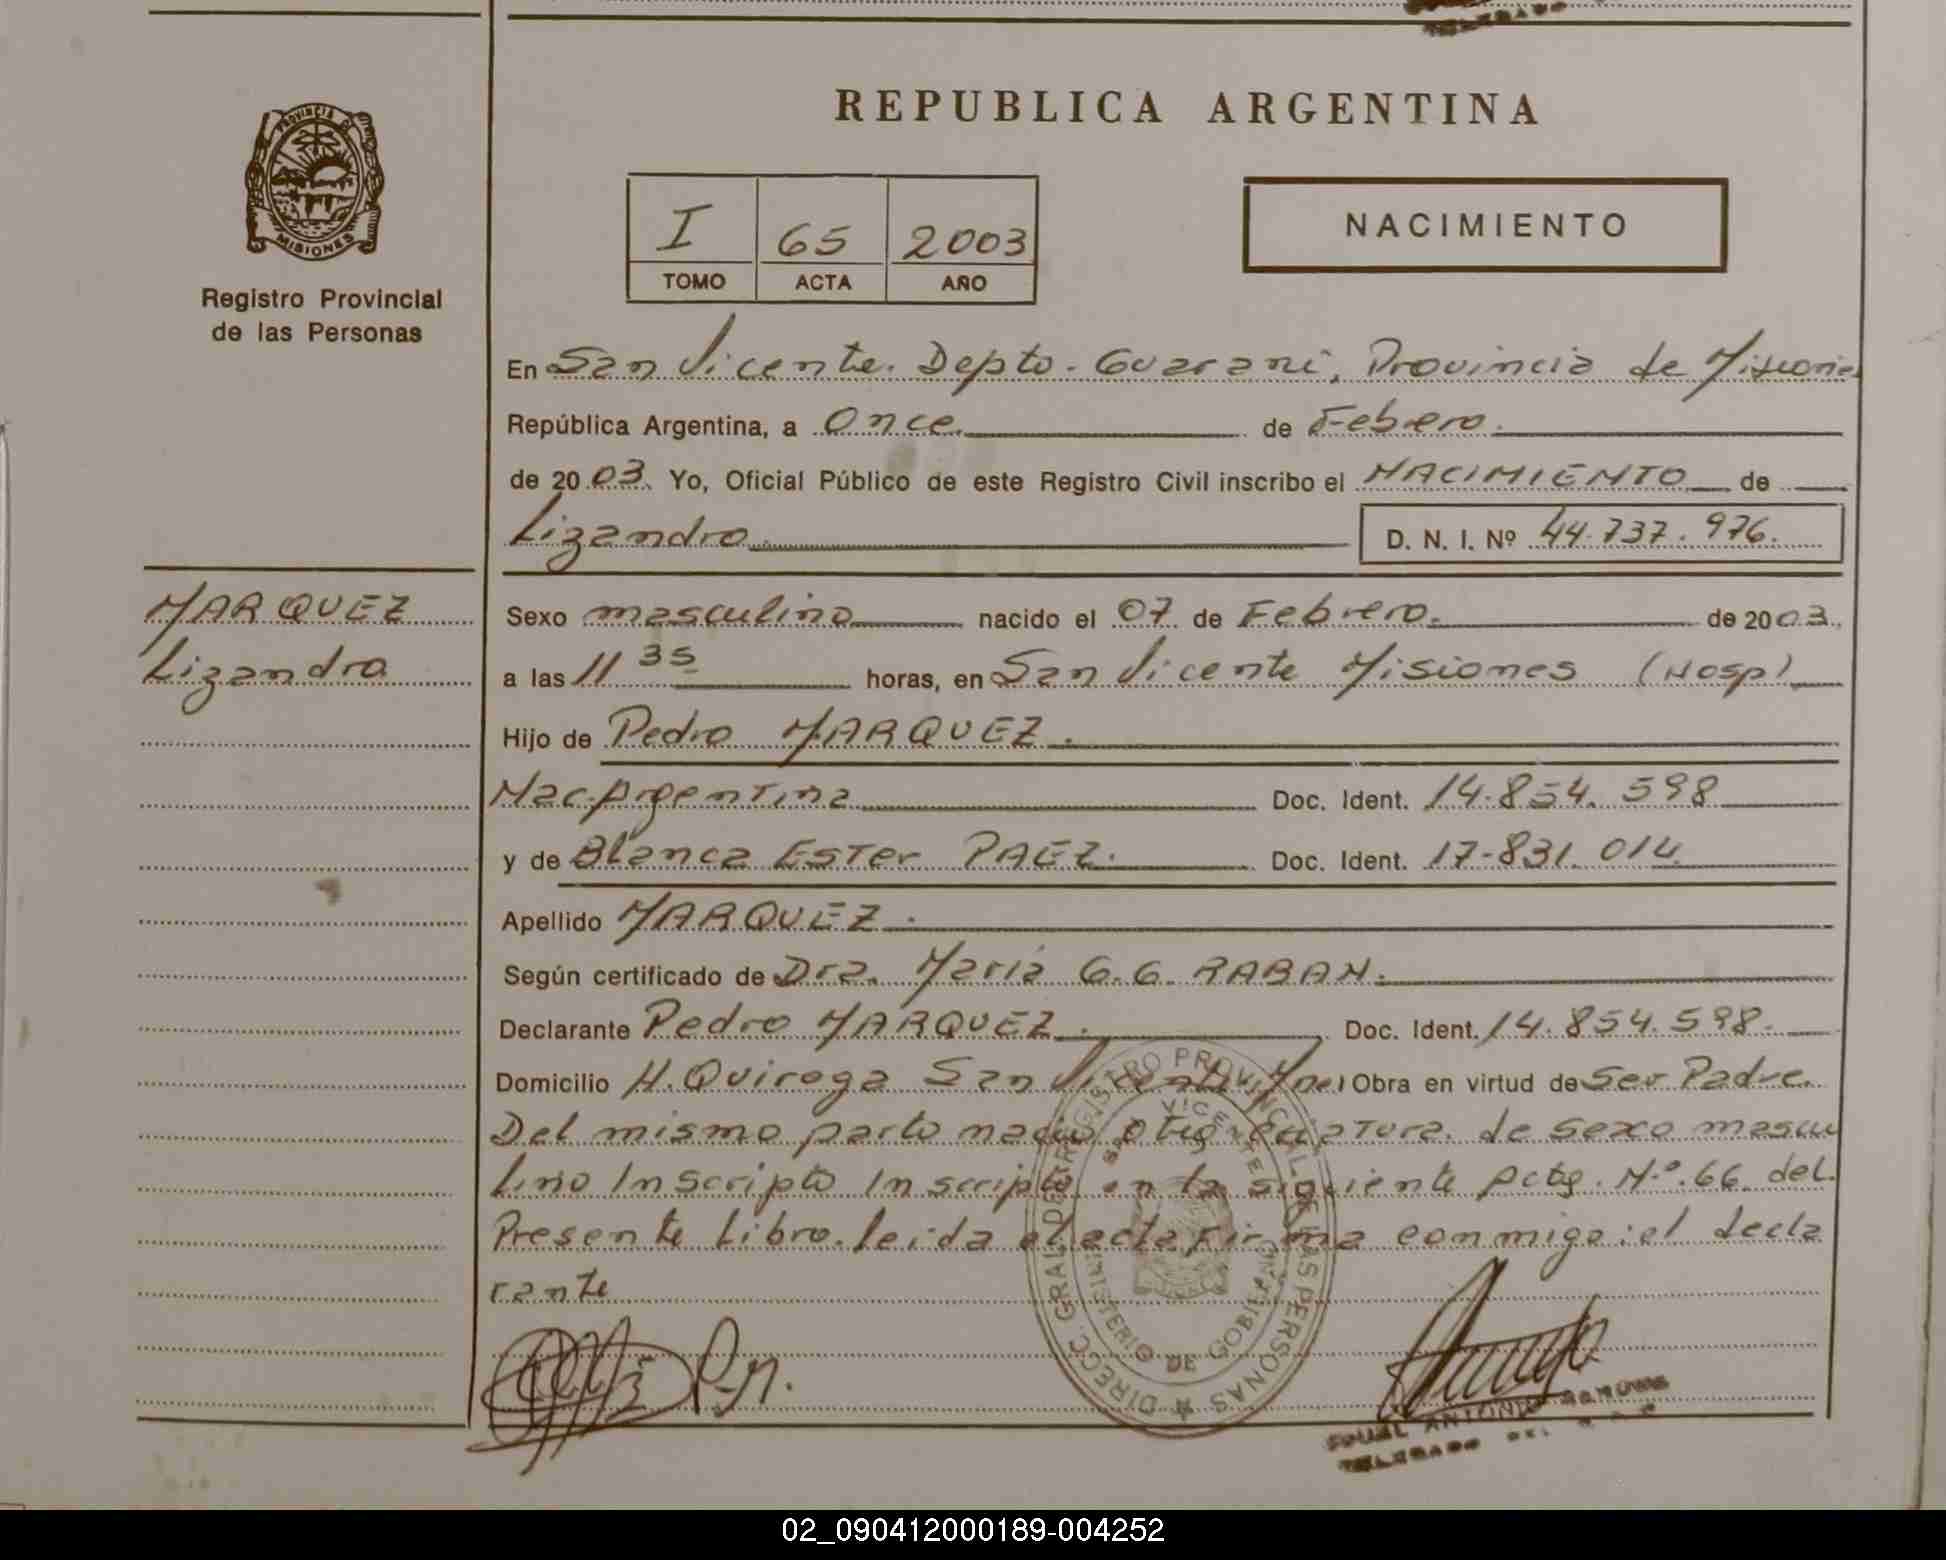 REPUBLICA ARGENTINA
PROVINCIA DE
MISIONES
Registro Provincial
de las Personas
I 65 2003
TOMO ACTA AÑO
NACIMIENTO
En San Vicente. Depto. Guarani, Provincia de Misiones
República Argentina, a Once de Febrero.
de 2003. Yo, Oficial Público de este Registro Civil inscribo el NACIMIENTO de
Lizandro. D. N. I. Nº 44.737.976.
MARQUEZ
Lizandro
Sexo masculino nacido el 07 de Febrero. de 2003.
a las 11 35 horas, en San Vicente Misiones (Hosp)
Hijo de Pedro MARQUEZ.
Nac. Argentina Doc. Ident. 14.854.598
y de Blanca Ester PAEZ. Doc. Ident. 17-831.014
Apellido MARQUEZ.
Según certificado de Dra. Maria G.G. RABAN.
Declarante Pedro MARQUEZ. Doc. Ident. 14.854.598.
Domicilio H. Quiroga San Vicente Mnes Obra en virtud de Ser Padre.
Del mismo parto nacio otra criatura de sexo mascu
lino Inscripto Inscripto en la siguiente Acta. Nº.66 del.
Presente Libro. leida el acta Firma conmigo: el decla
rante
DIRECC. GRAL. DEL REGISTRO PROVINCIAL DE LAS PERSONAS
SAN VICENTE
MINISTERIO DE GOBIERNO
P.M.
ANTONIO
DELEGADO
02_090412000189-004252